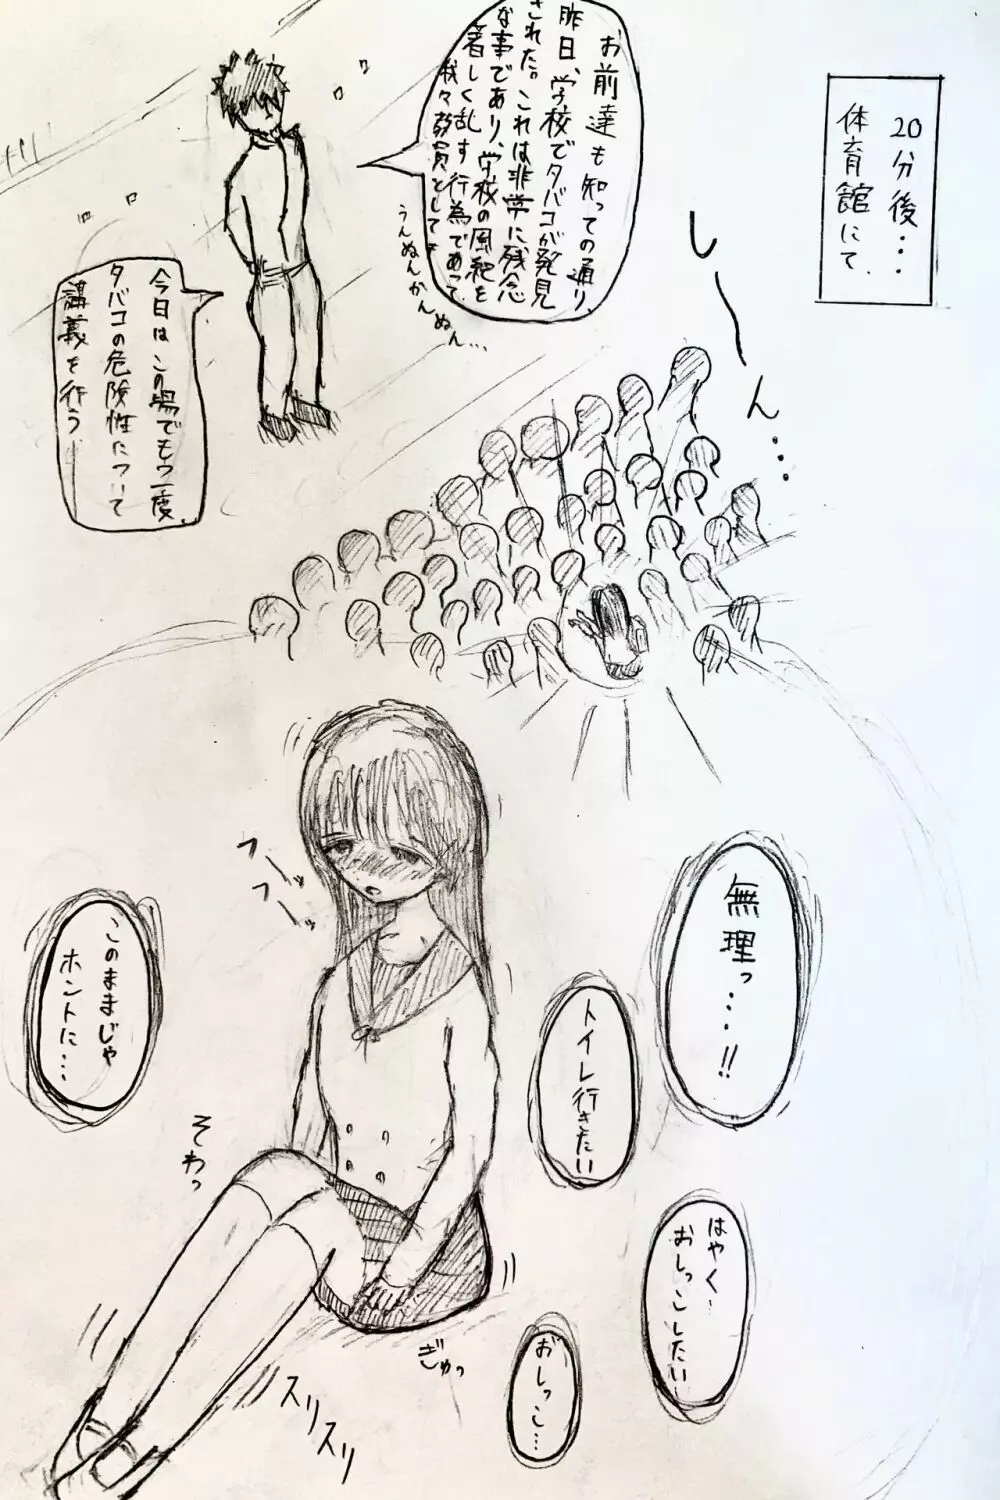 20分後・・・
体育館にて
お前達も知っての通り
昨日、学校でタバコが発見
された。これは非常に残念
な事であり、学校の風紀を
著しく乱す行為であって、
我々教員としてよ
うんぬんかんぬん…
今日はこの場でもう一度、
タバコの危険性について
講義を行う
し〜ん…
フーッ
フーッ
無理っ…!!
トイレ行きたい
このままじゃ
ホントに…
そわっ
はやく、
おしっこしたい
おしっこ…
ぎゅっ
スリスリ